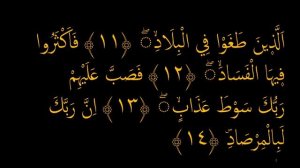 الَّذِينَ طَغَوْا فِي الْبِلَادِۙ ﴿١١﴾ فَاَكْثَرُوا
فِيهَا الْفَسَادَۙ ﴿١٢﴾ فَصَبَّ عَلَيْهِمْ
رَبُّكَ سَوْطَ عَذَابٍۙ ﴿١٣﴾ اِنَّ رَبَّكَ
لَبِالْمِرْصَادِۜ ﴿١٤﴾